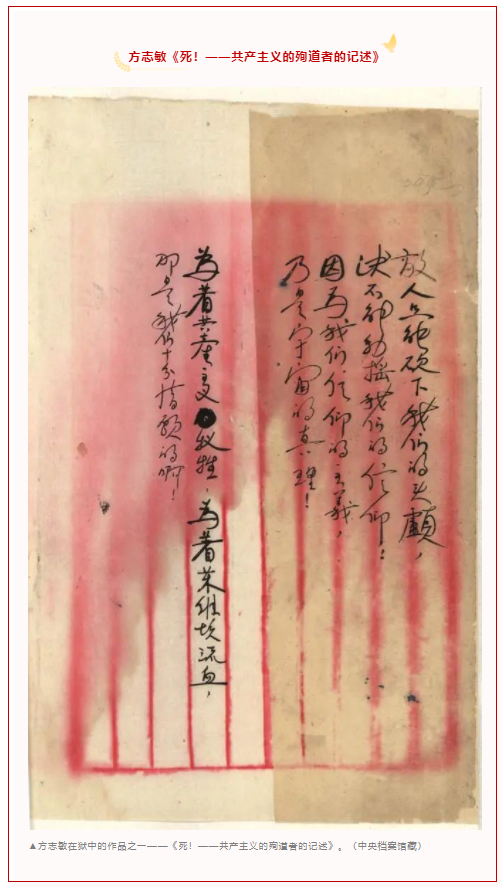 方志敏《死！——共产主义的殉道者的记述》
敌人只能砍下我们的头顱，
决不能动摇我们的信仰！
因為我们信仰的主義，
乃是宇宙的真理！
為着共產主义牺牲，為着苏维埃流血，
那是我们十分情願的啊！
▲方志敏在狱中的作品之一——《死！——共产主义的殉道者的记述》。（中央档案馆藏）